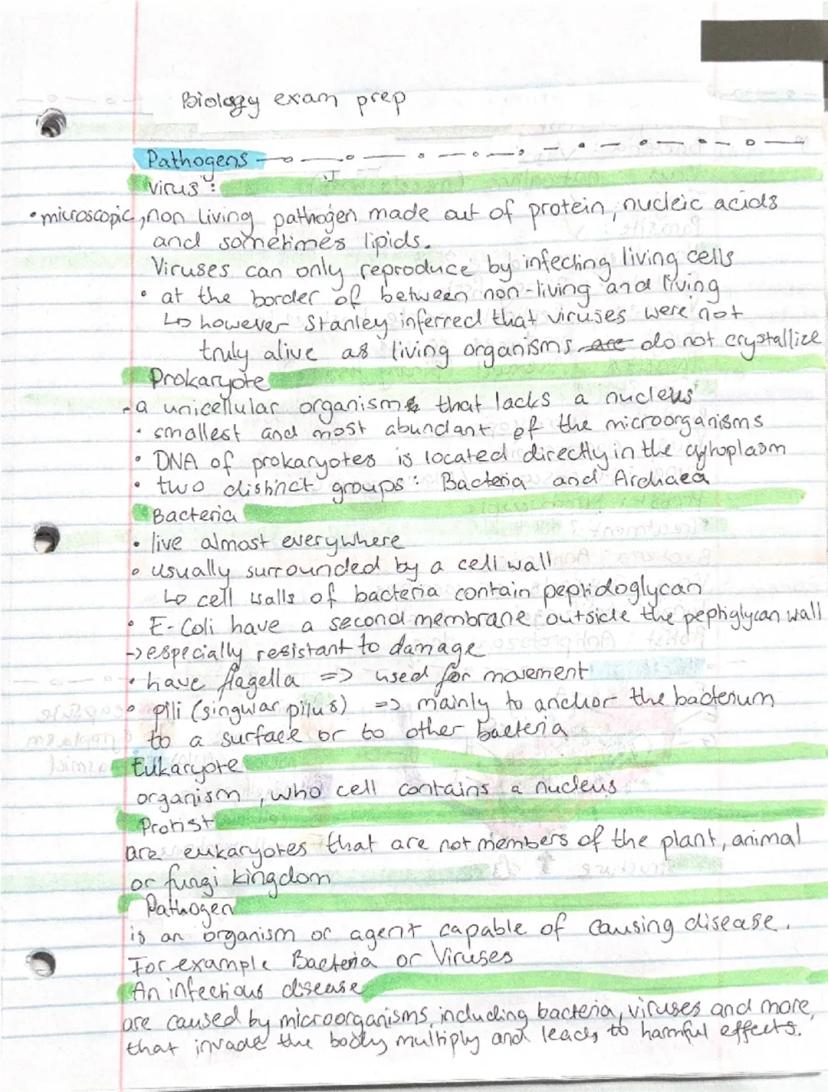 Biology exam prep
Pathogens
Virus :
• microscopic, non living pathogen made out of protein, nucleic acids
and sometimes lipids.
Viruses can only reproduce by infecting living cells
• at the border of between non-living and living
↳ however Stanley inferred that viruses were not
truly alive as living organisms are do not crystallize
Prokaryote
- a unicellular organism that lacks a nucleus
• smallest and most abundant of the microorganisms
• DNA of prokaryotes is located directly in the cytoplasm
• two distinct groups: Bacteria and Archaea
Bacteria
• live almost everywhere
• usually surrounded by a cell wall
↳ cell walls of bacteria contain peptidoglycan
• E-Coli have a second membrane outside the peptiglycan wall
→ especially resistant to damage
• have flagella => used for movement
• pili (singular pilus) => mainly to anchor the bacterium
to a surface or to other bacteria
Eukaryote
organism, who cell contains a nucleus
Protist
are eukaryotes that are not members of the plant, animal
or fungi kingdom
Pathogen
is an organism or agent capable of causing disease.
For example Bacteria or Viruses
An infectious disease
are caused by microorganisms, including bacteria, viruses and more,
that invade the body multiply and leads to harmful effects.